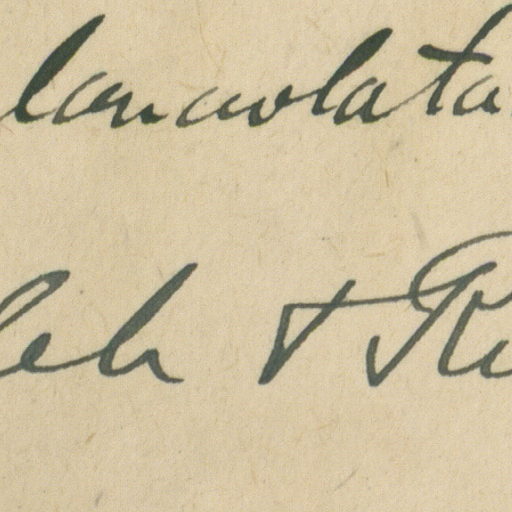 lanceolata
leh & Ri